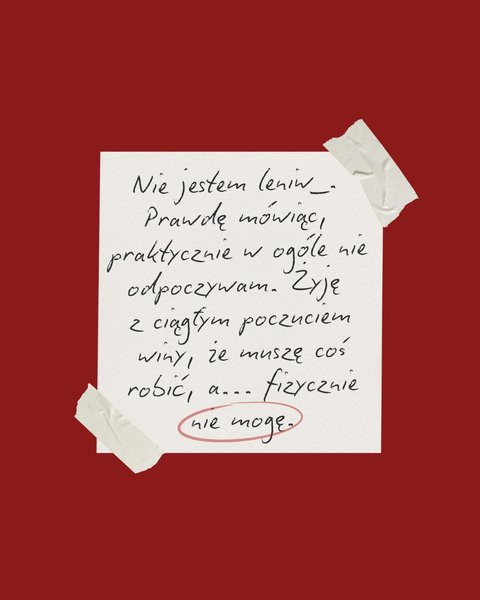 Nie jestem leniw_.
Prawdę mówiąc,
praktycznie w ogóle nie
odpoczywam. Żyję
z ciągłym poczuciem
winy, że muszę coś
robić, a... fizycznie
nie mogę.